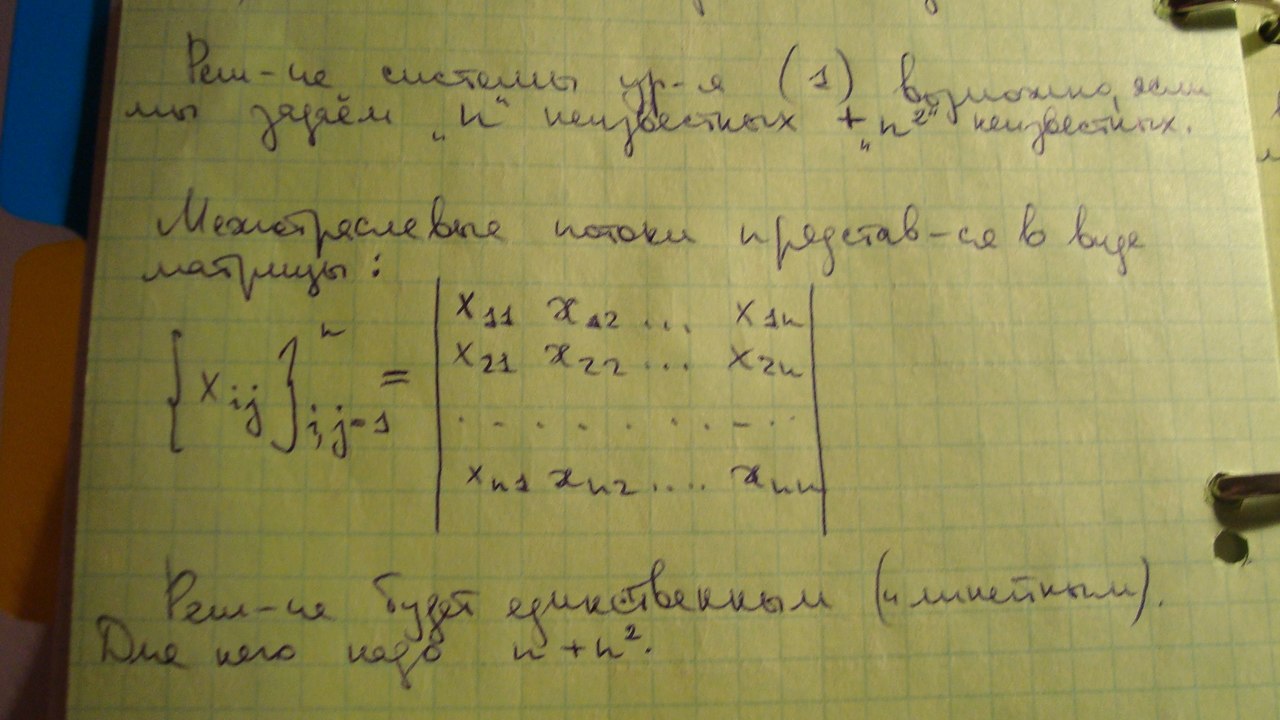 Реш-ие системы ур-я (1) возможно, если
мы задаём „n“ неизвестных + „n²“ неизвестных.
Межотраслевые потоки представ-ся в виде
матрицы:
{x_ij}ⁿ_i,j=1 = | x₁₁ x₁₂ ... x₁ₙ |
| x₂₁ x₂₂ ... x₂ₙ |
| . . . . . . . . . . |
| xₙ₁ xₙ₂ .... xₙₙ |
Реш-ие будет единственным (и линейным).
Для него надо n + n².